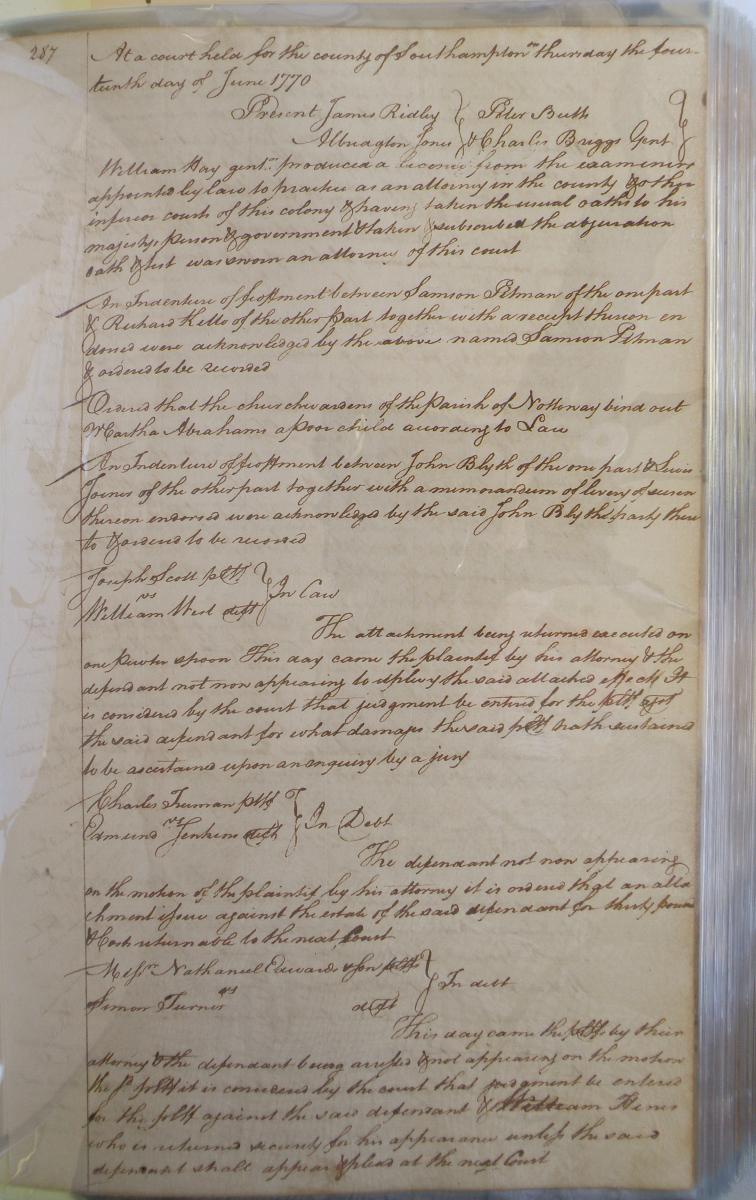 287
At a court held for the county of Southampton on thursday the four-
teenth day of June 1770
Present James Ridley } Peter Butts }
Albridgton Jones } & Charles Briggs Gent }
William Hay gent. produced a licence from the examiners
appointed by law to practice as an attorney in the county & other
inferior courts of this colony & having taken the usual oaths to his
majestys person & government & taken & subscribed the abjuration
oath & test was sworn an attorney of this court
An Indenture of feoffment between Samson Pitman of the one part
& Richard Kello of the other part together with a receipt thereon en
dorsed were acknowledged by the above named Samson Pitman
& ordered to be recorded
Ordered that the churchwardens of the Parish of Nottoway bind out
Martha Abrahams a poor child according to Law
An Indenture of feoffment between John Blyth of the one part & Lewis
Joiner of the other part together with a memorandum of livery of seisen
thereon endorsed were acknowledged by the said John Blyth party there
to & ordered to be recorded
Joseph Scott pltf }
vs } In Case
William West deft }
The attachment being returned executed on
one pewter spoon This day came the plaintif by his attorney & the
defendant not non appearing to replevy the said attached effects It
is considered by the court that judgment be entered for the pltf agst
the said defendant for what damages the said pltf hath sustained
to be ascertained upon an enquiry by a jury
Charles Truman pltf }
vs } In Debt
Edmund Jenkins deft }
The defendant not non appearing
on the motion of the plaintif by his attorney it is ordered that an atta
chment issue against the estate of the said defendant for thirty pound
& Costs returnable to the next Court
Messrs Nathaniel Edwards & son pltfs }
vs } In debt
Simon Turner deft }
This day came the pltfs by their
attorney & the defendant being arrested & not appearing on the motion
the sd pltf it is considered by the court that judgment be entered
for the pltf against the said defendant & William Hines
who is returned security for his appearance unless the said
defendant shall appear & plead at the next Court